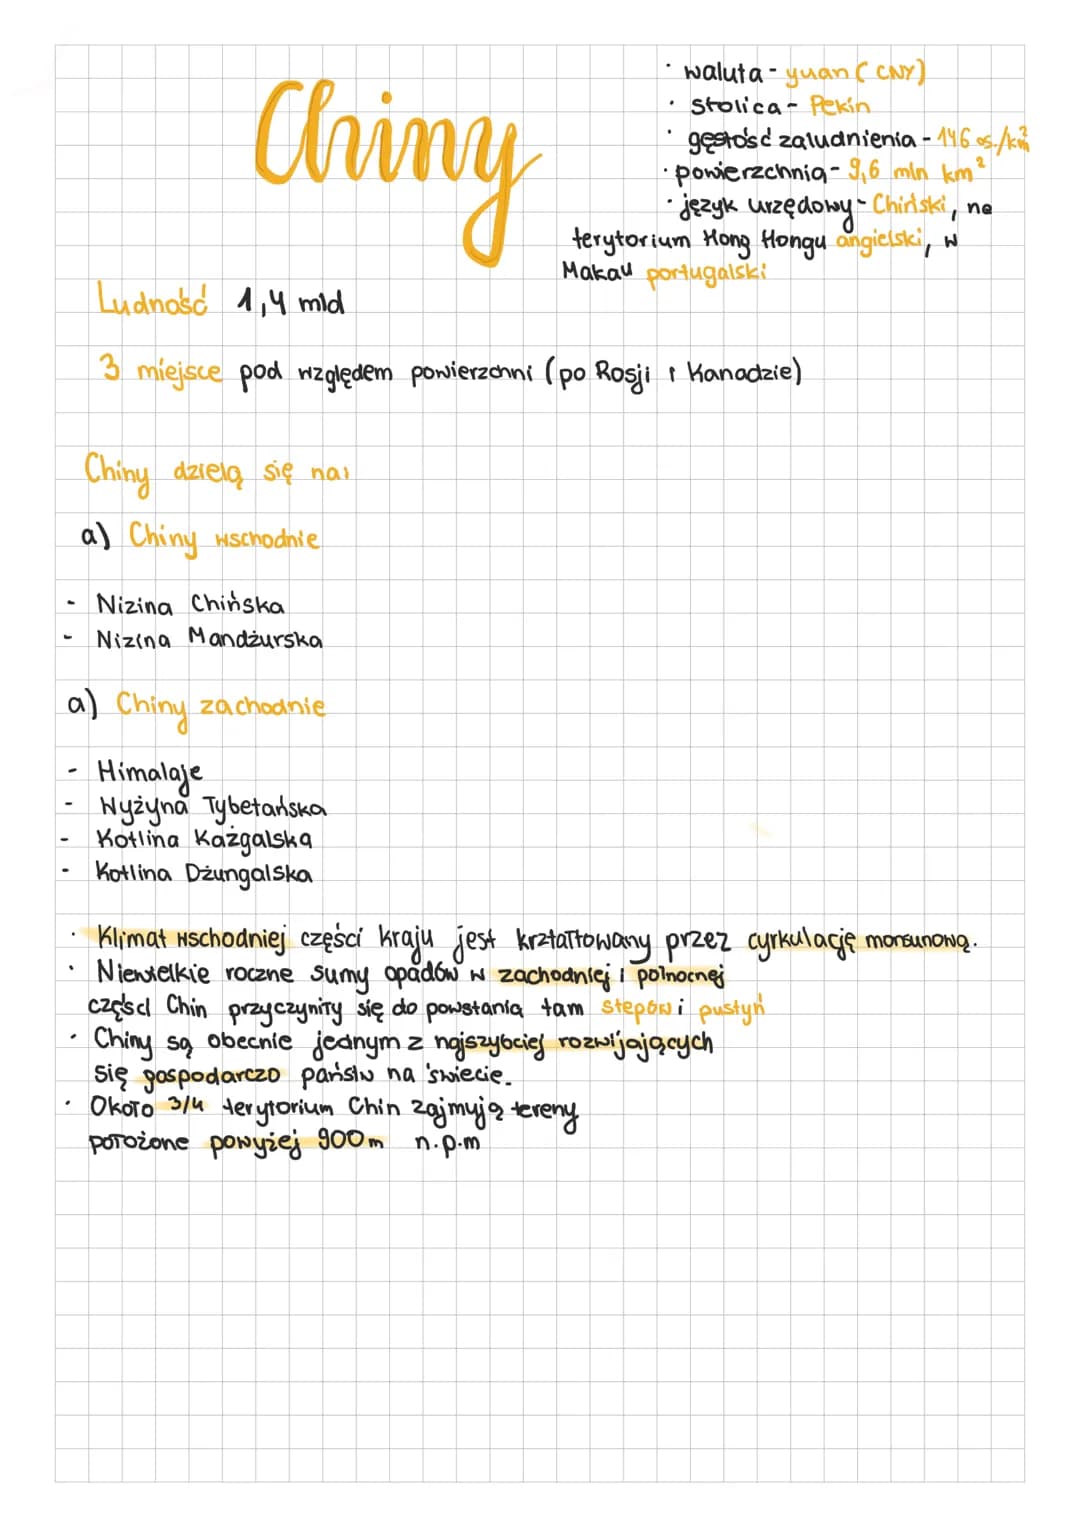 Chiny
· waluta - yuan (CNY)
· stolica - Pekin
· gęstość zaludnienia - 146 os./km²
· powierzchnia - 9,6 mln km²
· język urzędowy - Chiński, na
terytorium Hong Hongu angielski, w
Makau portugalski
Ludność 1,4 mld
3 miejsce pod względem powierzchni (po Rosji i Kanadzie)
Chiny dzielą się na:
a) Chiny wschodnie
- Nizina Chińska
- Nizina Mandżurska
a) Chiny zachodnie
- Himalaje
- Wyżyna Tybetańska
- Kotlina Każgalska
- Kotlina Dżungalska
· Klimat wschodniej części kraju jest krztałtowany przez cyrkulację monsunową.
· Niewielkie roczne sumy opadów w zachodniej i połnocnej
części Chin przyczyniły się do powstania tam stepów i pustyń
· Chiny są obecnie jednym z najszybciej rozwijających
się gospodarczo państw na świecie.
· Około 3/4 terytorium Chin zajmują tereny
położone powyżej 900m n.p.m